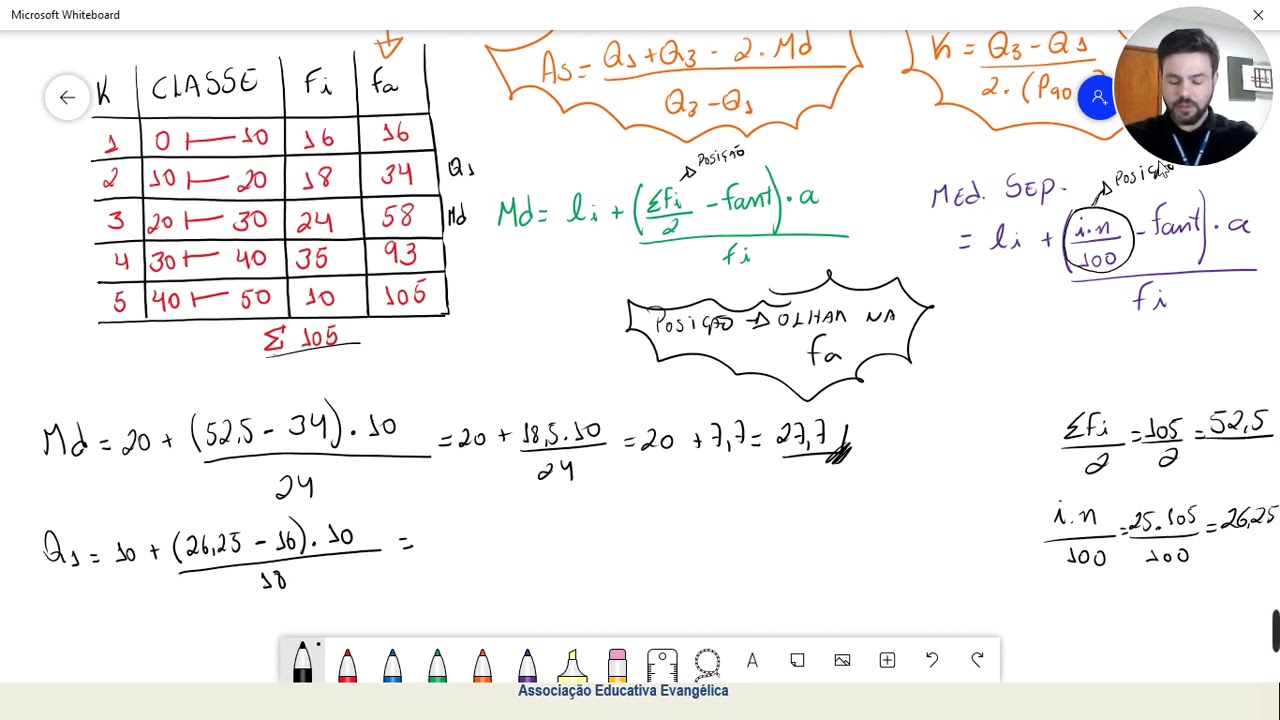 Microsoft Whiteboard
K CLASSE Fi fa
1 0 ⊢ 10 16 16
2 10 ⊢ 20 18 34 Q1
3 20 ⊢ 30 24 58 Md
4 30 ⊢ 40 35 93
5 40 ⊢ 50 10 105
Σ 105
As = Q1 + Q3 - 2 . Md
Q3 - Q1
K = Q3 - Q1
2. (P90
Posição
Md = li + (ΣFi/2 - fant) . a
fi
Med. Sep.
Posição
= li + (i.n/100 - fant) . a
fi
Posição → OLHAR NA
fa
Md = 20 + (52,5 - 34) . 10 / 24 = 20 + 18,5 . 10 / 24 = 20 + 7,7 = 27,7
ΣFi/2 = 105/2 = 52,5
Q1 = 10 + (26,25 - 16) . 10 / 18 =
i.n/100 = 25.105/100 = 26,25
A
Associação Educativa Evangélica